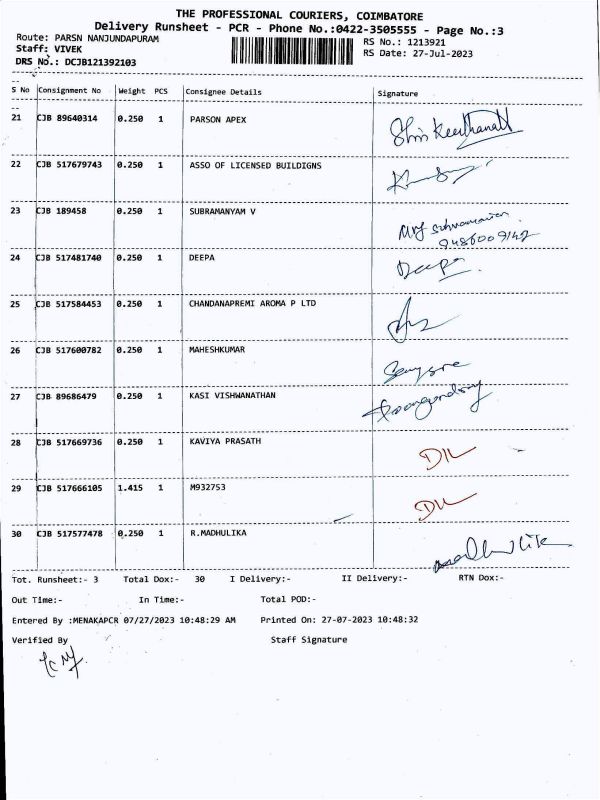 THE PROFESSIONAL COURIERS, COIMBATORE
Delivery Runsheet - PCR - Phone No.:0422-3505555 - Page No.:3
Route: PARSN NANJUNDAPURAM RS No.: 1213921
Staff: VIVEK RS Date: 27-Jul-2023
DRS No.: DCJB121392103
S No Consignment No Weight PCS Consignee Details Signature
21 CJB 89640314 0.250 1 PARSON APEX
22 CJB 517679743 0.250 1 ASSO OF LICENSED BUILDIGNS
23 CJB 189458 0.250 1 SUBRAMANYAM V
9486009142
24 CJB 517481740 0.250 1 DEEPA Deepa
25 CJB 517584453 0.250 1 CHANDANAPREMI AROMA P LTD
26 CJB 517600782 0.250 1 MAHESHKUMAR
27 CJB 89686479 0.250 1 KASI VISHWANATHAN
28 CJB 517669736 0.250 1 KAVIYA PRASATH
29 CJB 517666105 1.415 1 M932753
30 CJB 517577478 0.250 1 R.MADHULIKA
Tot. Runsheet:- 3 Total Dox:- 30 I Delivery:- II Delivery:- RTN Dox:-
Out Time:- In Time:- Total POD:-
Entered By :MENAKAPCR 07/27/2023 10:48:29 AM Printed On: 27-07-2023 10:48:32
Verified By Staff Signature